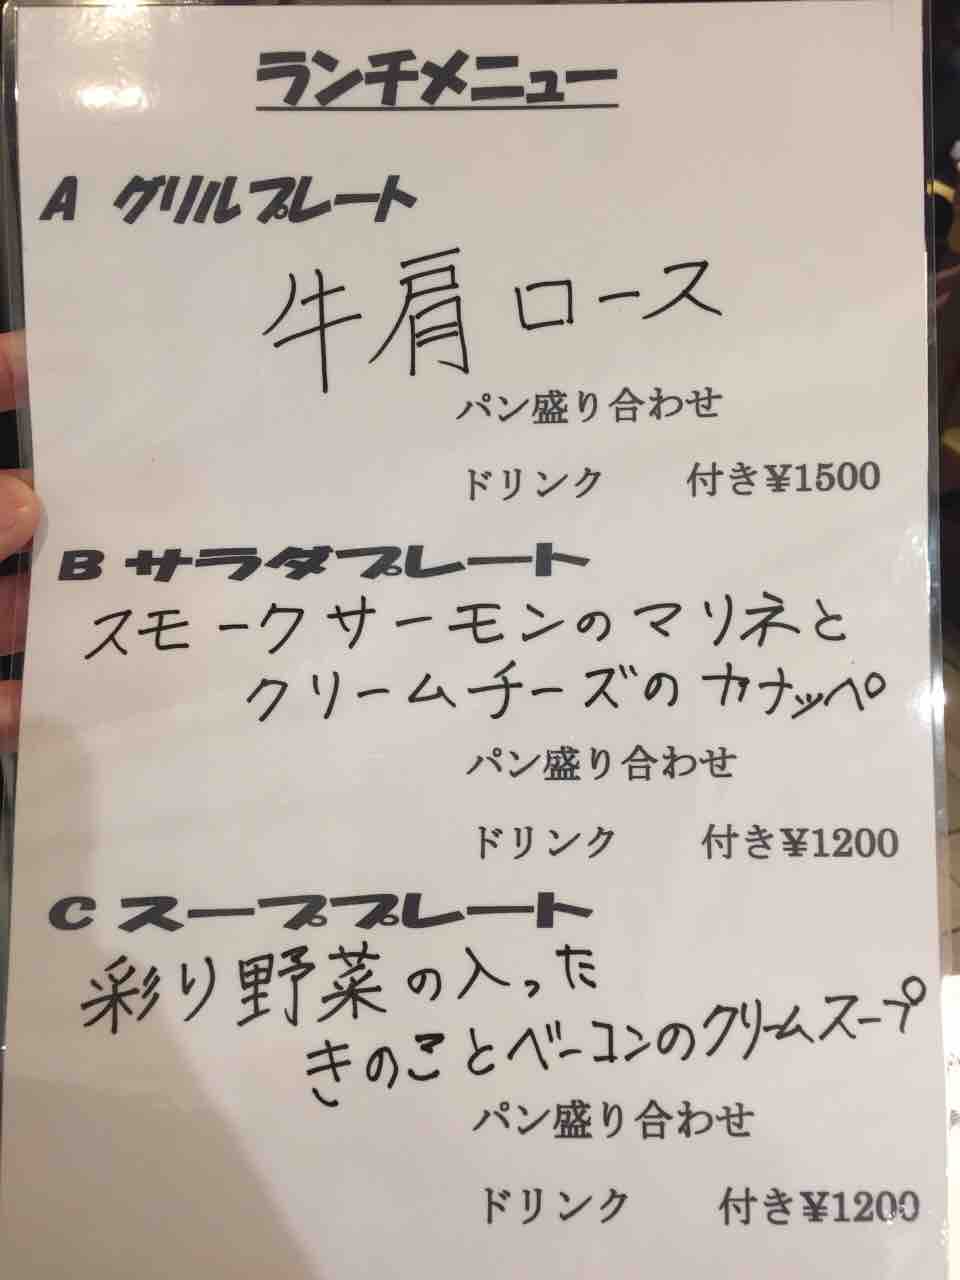 ランチメニュー
A グリルプレート
牛肩ロース
パン盛り合わせ
ドリンク 付き¥1500
B サラダプレート
スモークサーモンのマリネと
クリームチーズのカナッペ
パン盛り合わせ
ドリンク 付き¥1200
C スーププレート
彩り野菜の入った
きのことベーコンのクリームスープ
パン盛り合わせ
ドリンク 付き¥1200